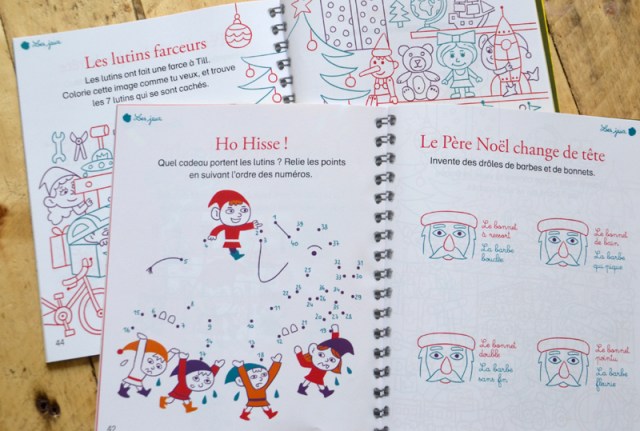 Les lutins farceurs
Les lutins ont fait une farce à Till.
Colorie cette image comme tu veux, et trouve
les 7 lutins qui se sont cachés.
44
Ho Hisse !
Quel cadeau portent les lutins ? Relie les points
en suivant l'ordre des numéros.
Le Père Noël change de tête
Invente des drôles de barbes et de bonnets.
Le bonnet
à ressort
La barbe
bouclée
Le bonnet
de bain
La barbe
qui pique
Le bonnet
double
La barbe
sans fin
Le bonnet
pointu
La barbe
fleurie